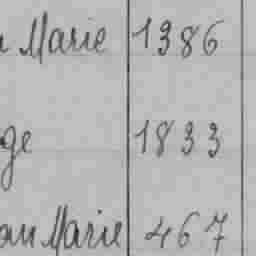 Marie 1386
ge 1833
an Marie 467